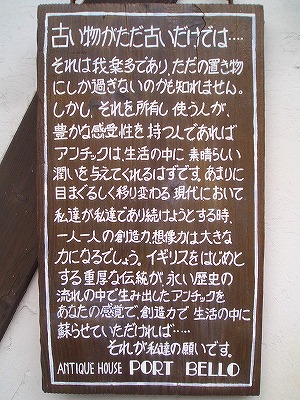 古い物がただ古いだけでは‥‥
それは我楽多であり、ただの置き物
にしか過ぎないのかも知れません。
しかし、それを所有し使う人が、
豊かな感受性を持つ人であれば
アンチックは、生活の中に素晴らしい
潤いを与えてくれるはずです。あまりに
目まぐるしく移り変わる現代において
私達が私達であり続けようとする時、
一人一人の創造力、想像力は大きな
力になるでしょう。イギリスをはじめと
する重厚な伝統が、永い歴史の
流れの中で生み出したアンチックを
あなたの感覚で、創造力で生活の中に
蘇らせていただければ‥‥
それが私達の願いです。
ANTIQUE HOUSE PORT BELLO